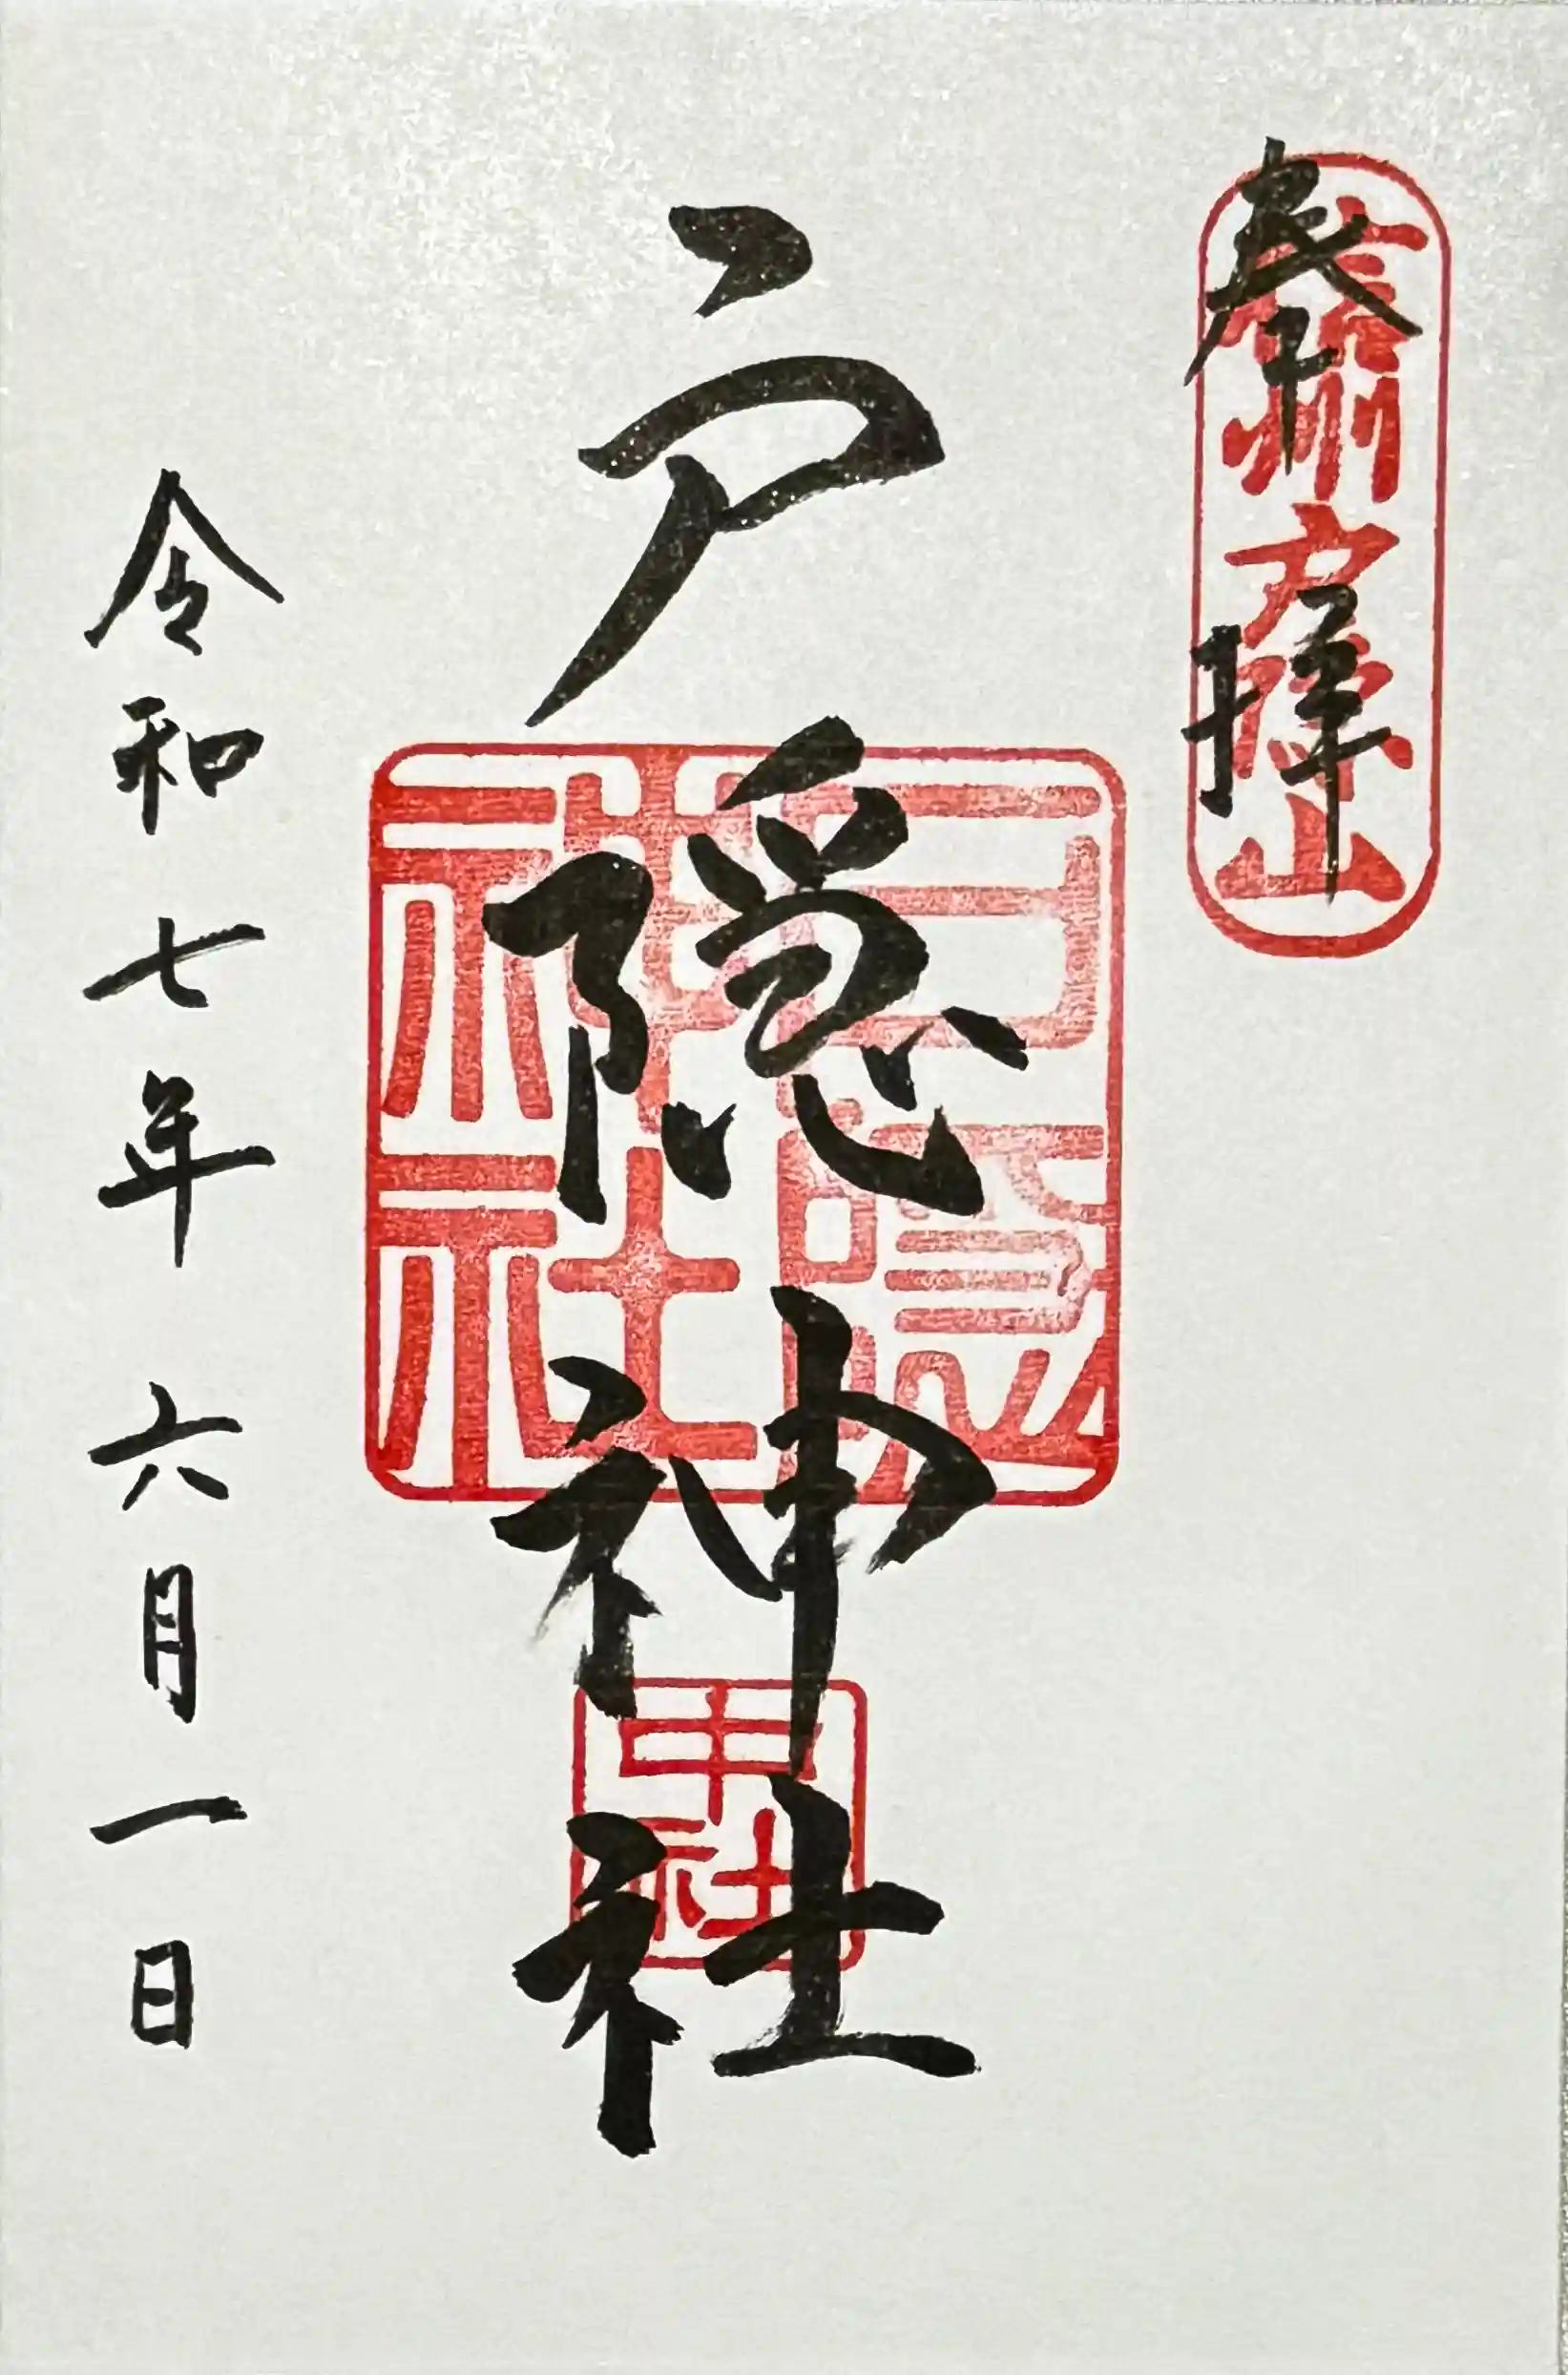 奉拝
信州戸隠山
戸隠神社
戸隠神社
中社
令和七年六月一日